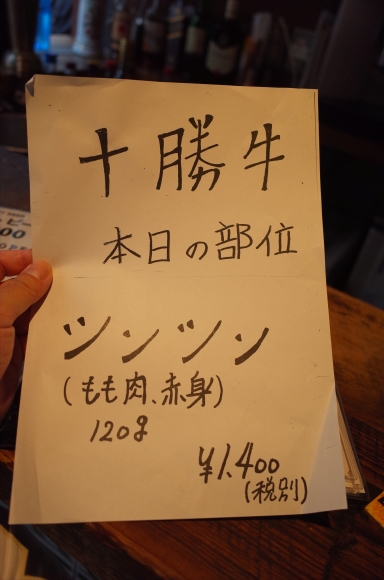 十勝牛
本日の部位
ツンツン
(もも肉、赤身)
120g
¥1,400
(税別)